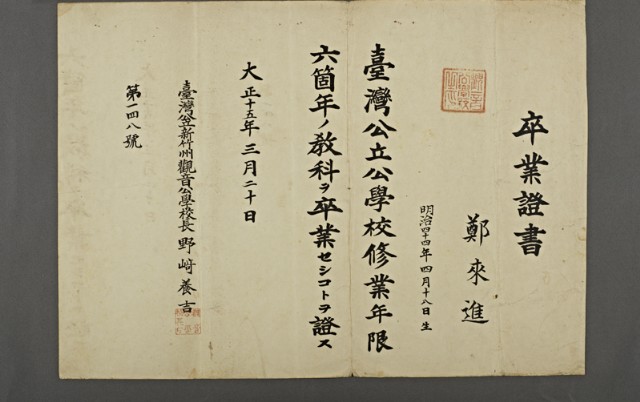 卒業證書
鄭來進
明治四十四年四月十八日生
臺灣公立公學校修業年限
六箇年ノ教科ヲ卒業セシコトヲ證ス
大正十五年三月二十日
臺灣公立新竹州觀音公學校長野﨑養吉
第一四八號